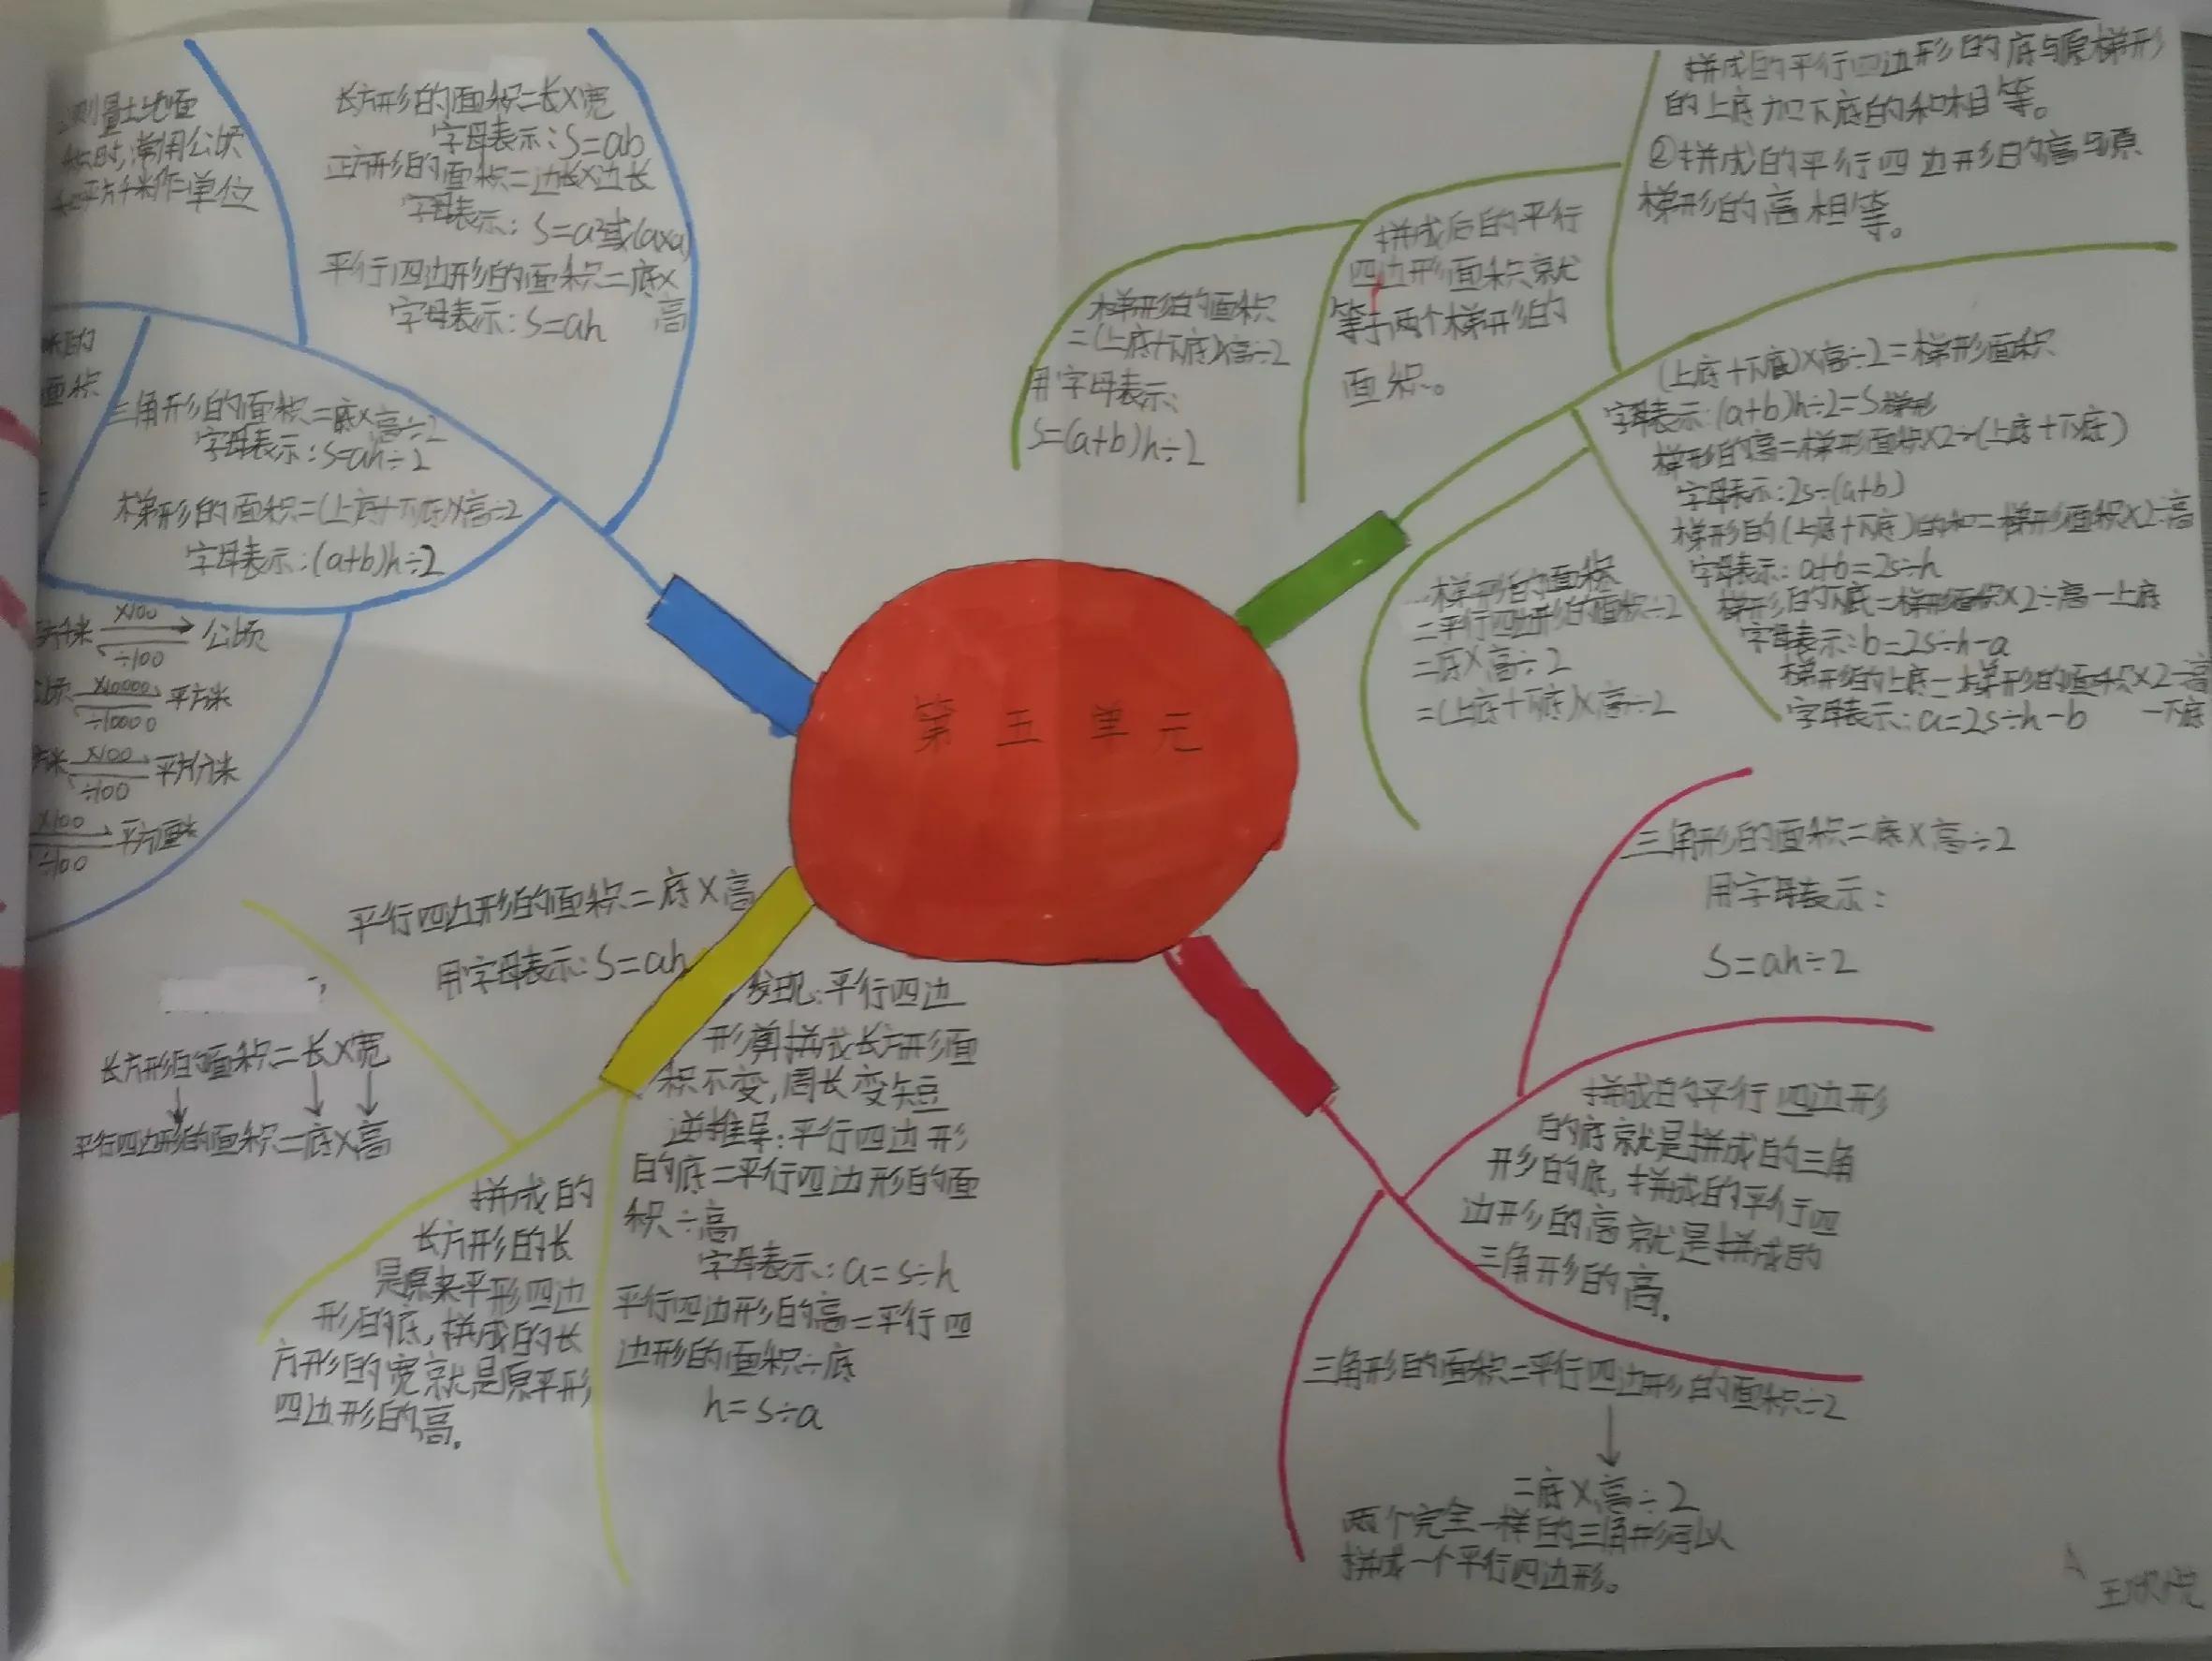 测量土地面
积时,常用公顷
和平方千米作单位
长方形的面积=长×宽
字母表示:S=ab
正方形的面积=边长×边长
字母表示:S=a²或(a×a)
平行四边形的面积=底×
高
字母表示:S=ah
米的
面积
三角形的面积=底×高÷2
字母表示:S=ah÷2
梯形的面积=(上底+下底)×高÷2
字母表示:(a+b)h÷2
方千米 ×100 ÷100 公顷
公顷 ×10000 ÷10000 平方米
方米 ×100 ÷100 平方分米
×100 ÷100 平方厘米
第五单元
拼成的平行四边形的底与原梯形
的上底加下底的和相等。
②拼成的平行四边形的高与原
梯形的高相等。
拼成后的平行
四边形面积就
等于两个梯形的
面积。
梯形的面积
=(上底+下底)×高÷2
用字母表示:
S=(a+b)h÷2
(上底+下底)×高÷2=梯形面积
字母表示:(a+b)h÷2=S梯形
梯形的高=梯形面积×2÷(上底+下底)
字母表示:2s÷(a+b)
梯形的(上底+下底)的和=梯形面积×2÷高
字母表示:a+b=2s÷h
梯形的下底=梯形面积×2÷高-上底
字母表示:b=2s÷h-a
梯形的上底=梯形的面积×2÷高
-下底
字母表示:a=2s÷h-b
梯形的面积
=平行四边形的面积÷2
=底×高÷2
=(上底+下底)×高÷2
平行四边形的面积=底×高
用字母表示:S=ah
长方形的面积=长×宽
平行四边形的面积=底×高
拼成的
长方形的长
是原来平形四边
形的底,拼成的长
方形的宽就是原平形
四边形的高.
发现:平行四边
形剪拼成长方形面
积不变,周长变短
逆推导:平行四边形
的底=平行四边形的面
积÷高
字母表示:a=s÷h
平行四边形的高=平行四
边形的面积÷底
h=s÷a
三角形的面积=底×高÷2
用字母表示:
S=ah÷2
拼成的平行四边形
的底就是拼成的三角
形的底,拼成的平行四
边形的高就是拼成的
三角形的高.
三角形的面积=平行四边形的面积÷2
=底×高÷2
两个完全一样的三角形可以
拼成一个平行四边形。